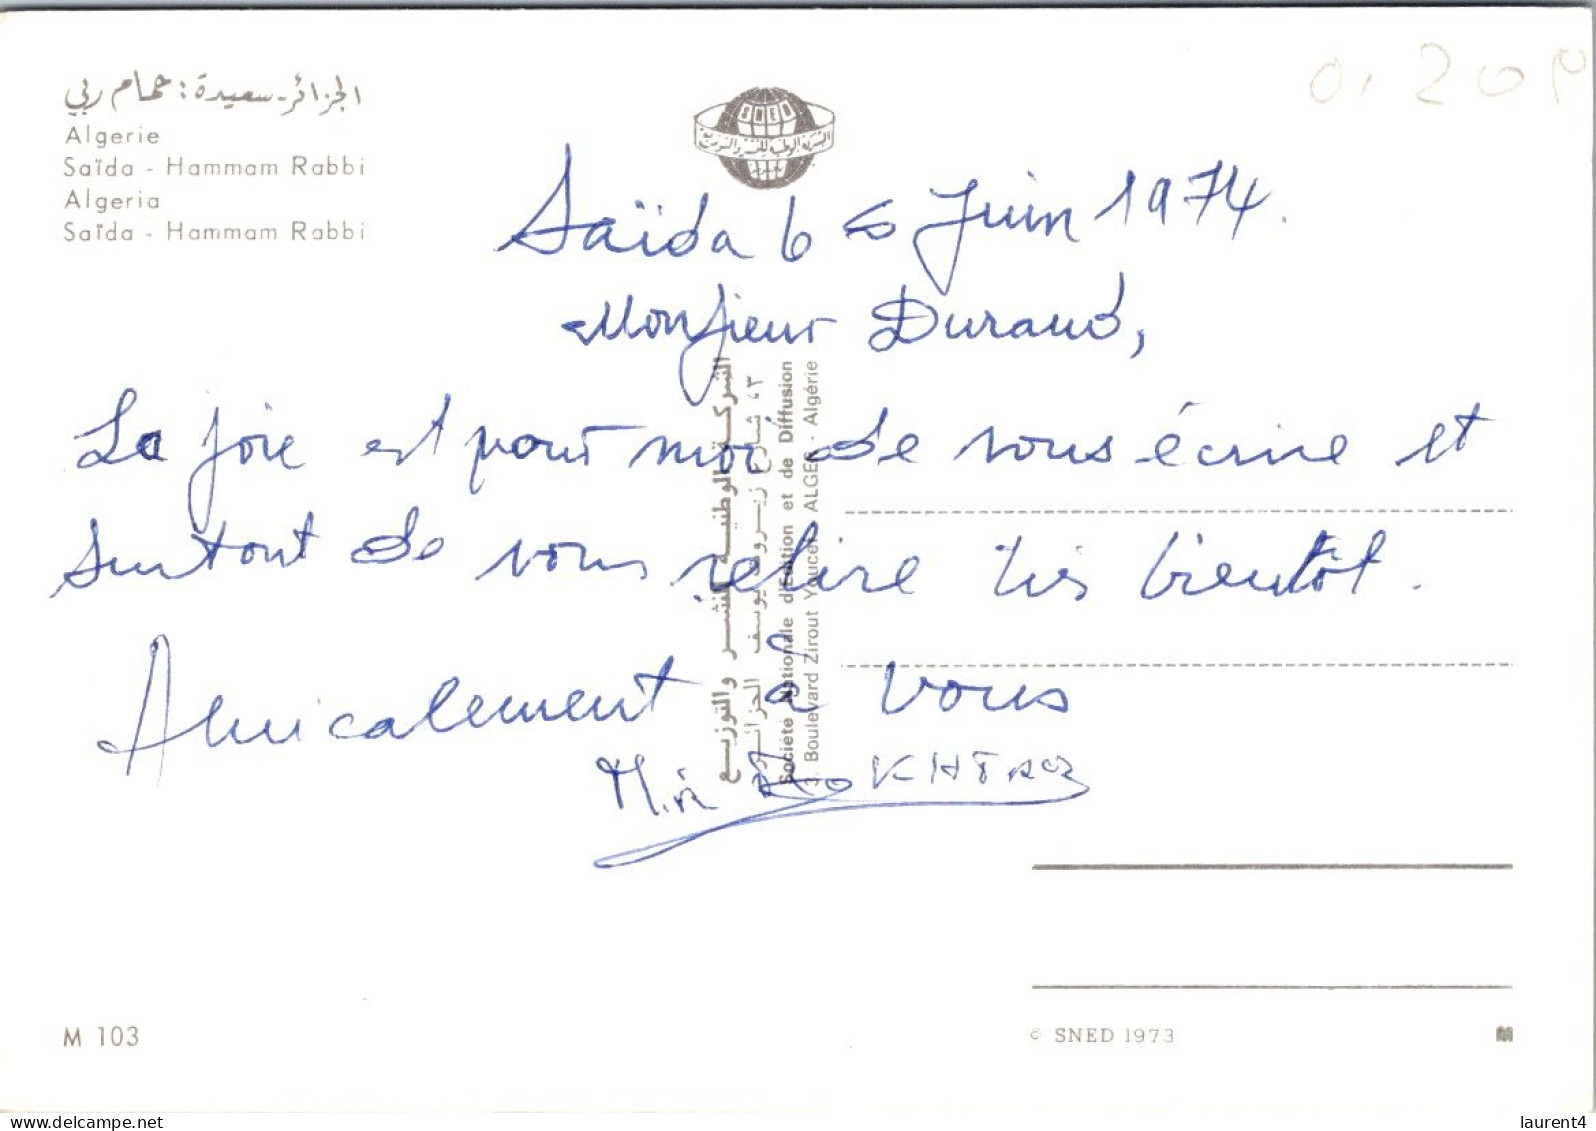 الجزائر - سعيدة : حمام ربي
Algerie
Saïda - Hammam Rabbi
Algeria
Saïda - Hammam Rabbi
SNED
الشركة الوطنية للنشر والتوزيع
0,20
Saïda 6 Juin 1974.
Monsieur Durand,
La joie est pour moi de vous écrire et
surtout de vous relire très bientôt.
Amicalement à vous
الشركة الوطنية للنشر والتوزيع
٣، شارع زيروت يوسف الجزائر
Société Nationale d'Edition et de Diffusion
3, Boulevard Zirout Youcef ALGER - Algérie
M 103
© SNED 1973
www.delcampe.net
laurent4